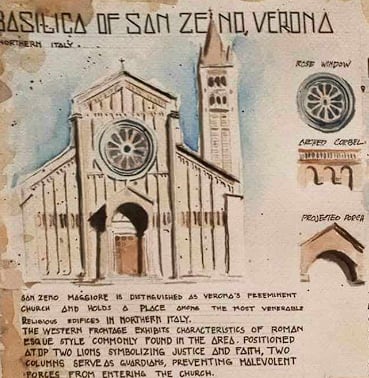 BASILICA OF SAN ZENO, VERONA
NORTHERN ITALY.
ROSE WINDOW
ARCHED CORBEL
PROJECTED PORCH
SAN ZENO MAGGIORE IS DISTINGUISHED AS VERONA'S PREEMINENT
CHURCH AND HOLDS A PLACE AMONG THE MOST VENERABLE
RELIGIOUS EDIFICES IN NORTHERN ITALY.
THE WESTERN FRONTAGE EXHIBITS CHARACTERISTICS OF ROMAN
ESQUE STYLE COMMONLY FOUND IN THE AREA. POSITIONED
ATOP TWO LIONS SYMBOLIZING JUSTICE AND FAITH, TWO
COLUMNS SERVE AS GUARDIANS, PREVENTING MALEVOLENT
FORCES FROM ENTERING THE CHURCH.